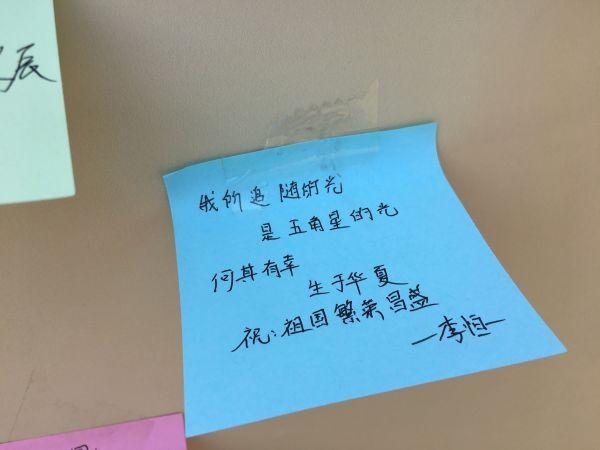 辰
我的追随的光
是五角星的光
何其有幸
生于华夏
祝:祖国繁荣昌盛
—李恒—